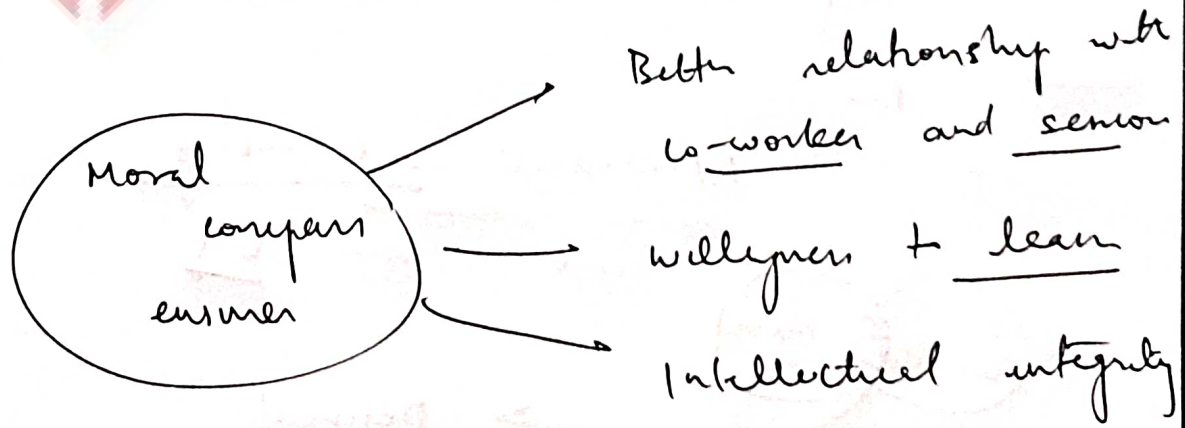 Moral
compass
ensures
Better relationship with
co-worker and senior
willingness to learn
Intellectual integrity